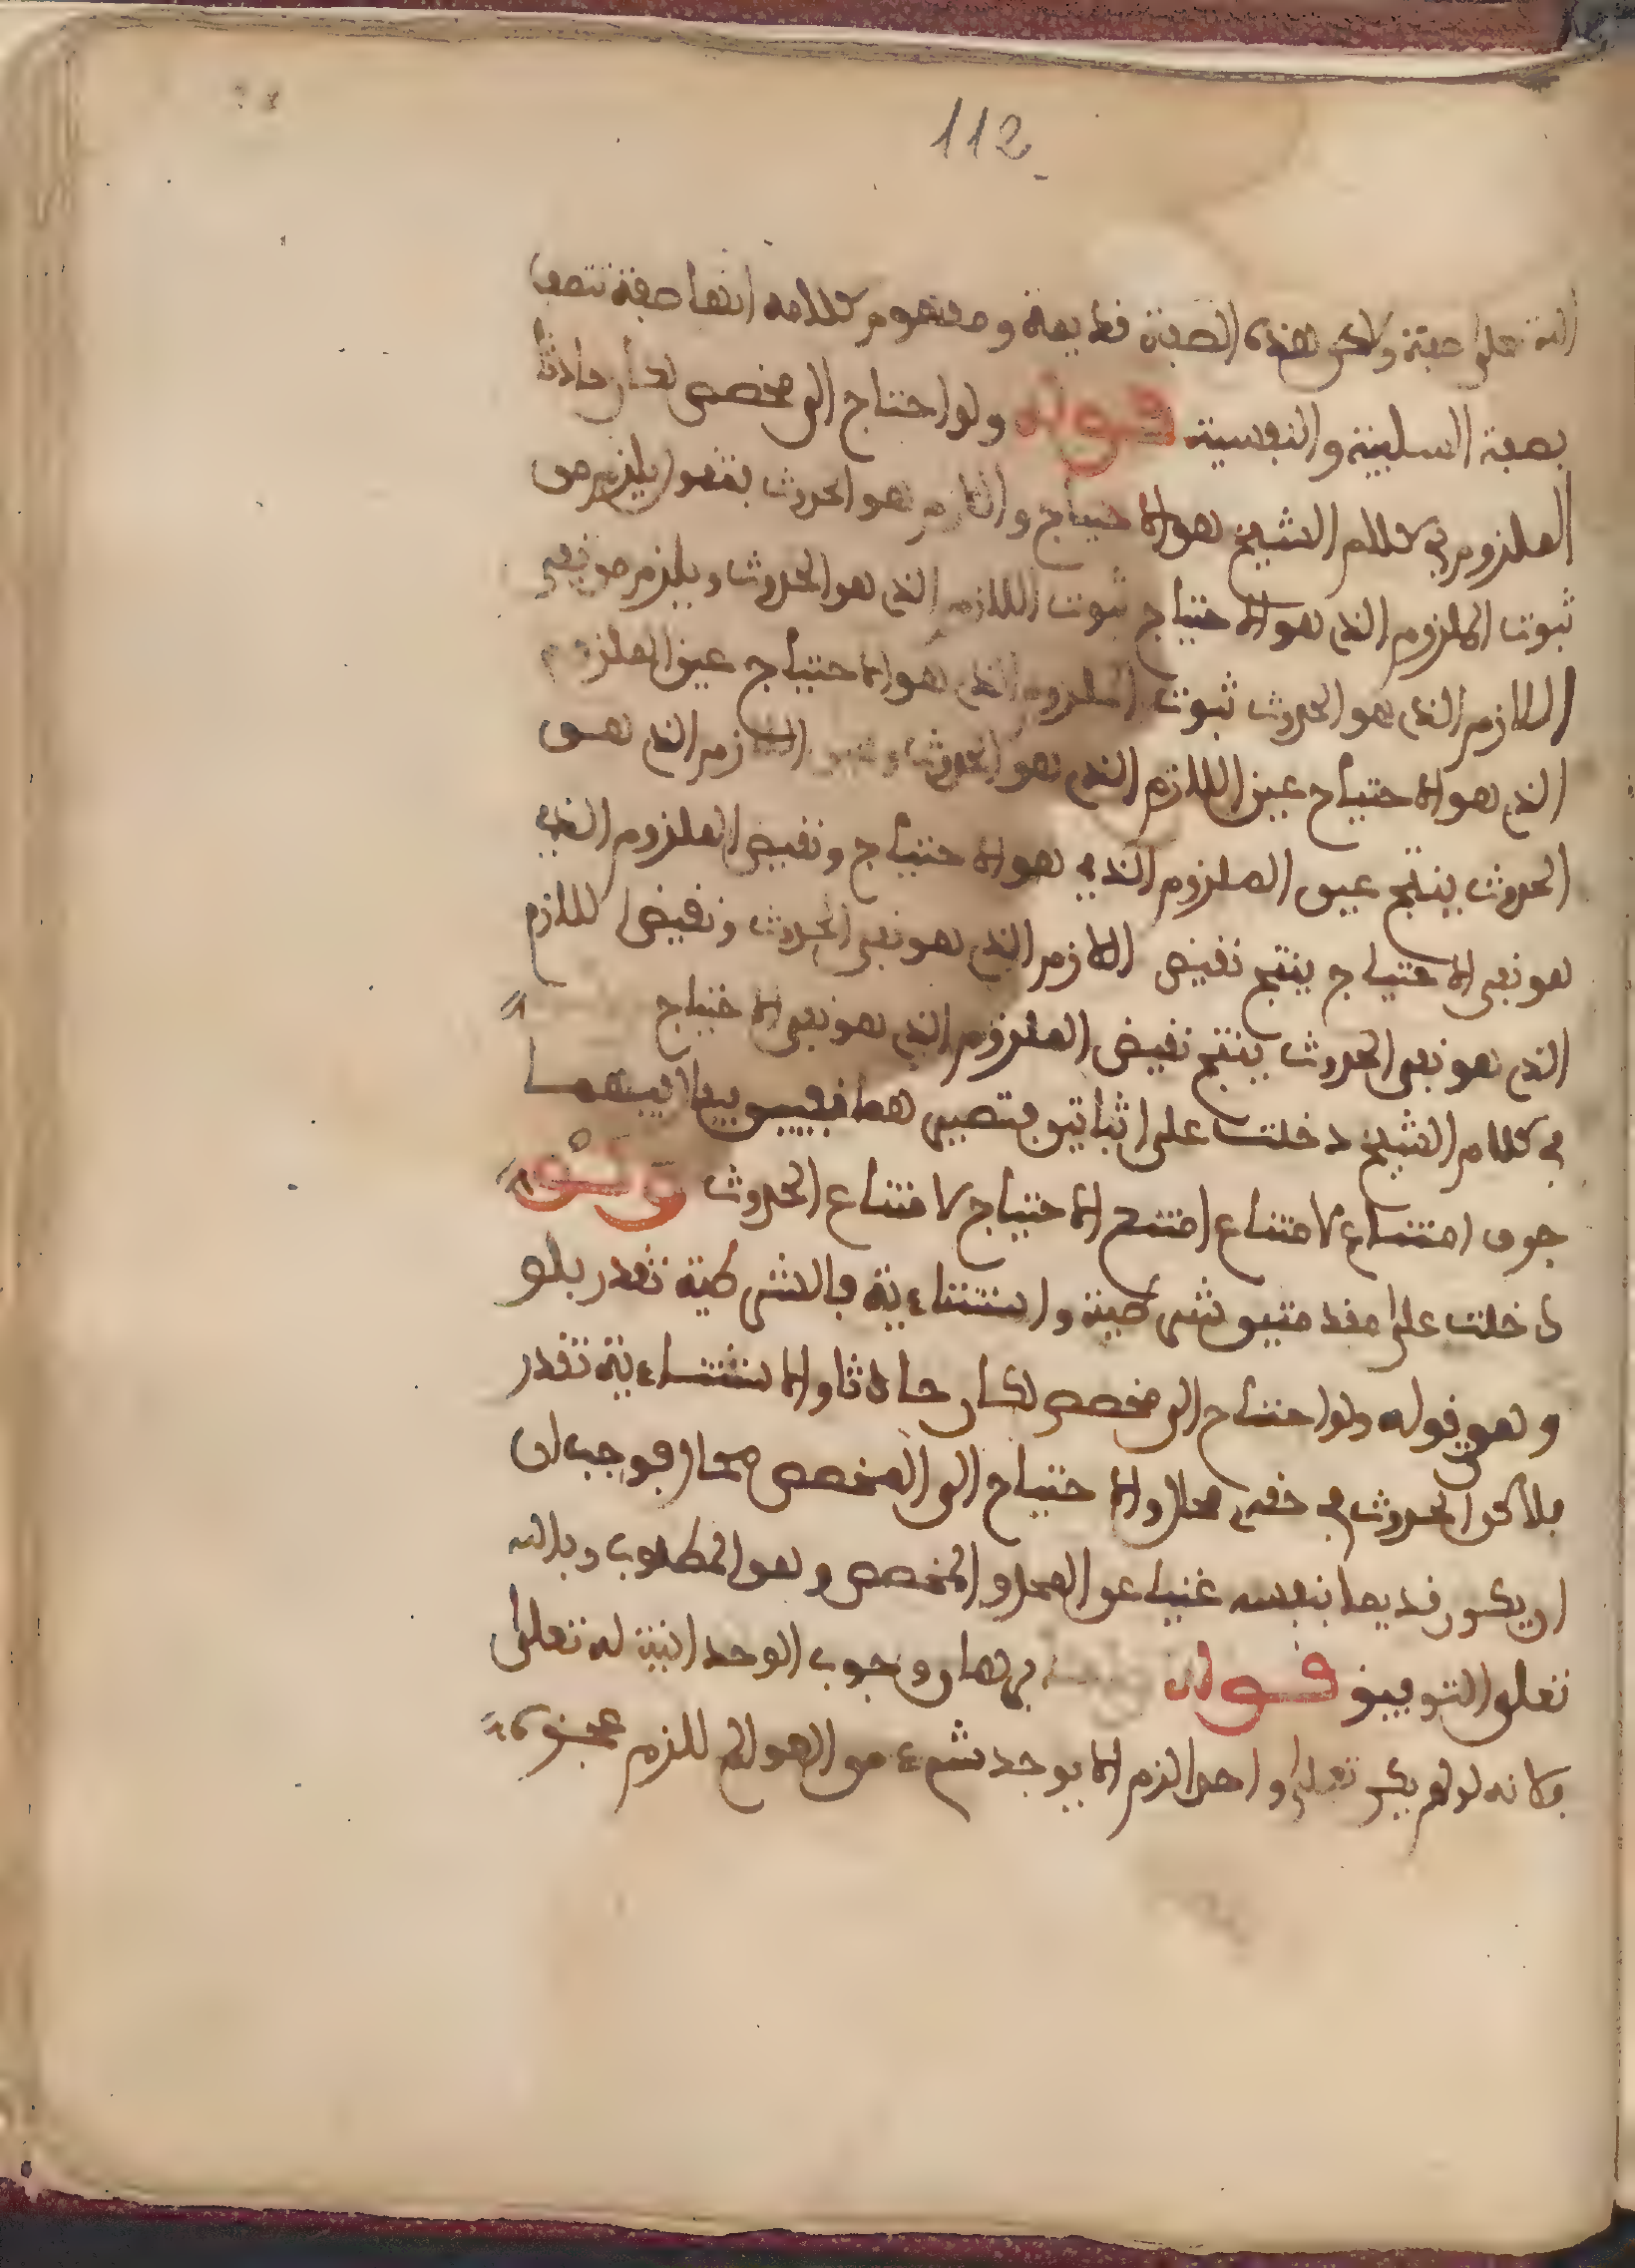 112
الله على صفة ولاكن هذه الصفة قطيعة ومفهوم كلامه انها صفة تتصف
بصفة السلبية والنفسية قوله ولو احتاج الى مخصص لكان حادثا
الملزوم في كلام الشيخ هو الاحتياج واللازم هو الحدوث بنقول يلزم من
ثبوت الملزوم الذي هو الاحتياج ثبوت اللازم الذي هو الحدوث ويلزم من نفي
اللازم الذي هو الحدوث ثبوت الملزوم الذي هو الاحتياج عين الملزوم
الذي هو الاحتياج عين اللازم الذي هو الحدوث وعين اللازم الذي هو
الحدوث ينتج عين الملزوم الذي هو الاحتياج ونقيض الملزوم الذي
هو نفي الاحتياج ينتج نقيض اللازم الذي هو نفي الحدوث ونقيض اللازم
الذي هو نفي الحدوث ينتج نقيض الملزوم الذي هو نفي الاحتياج
في كلام الشيخ دخلت على اثباتين فتصيرهما نفيين بينهما
حرف امتناع لامتناع امتنع الاحتياج لامتناع الحدوث ولو
دخلت على مقدمتين شرطية واستثناءية فالشرطية تقدر بلو
وهو قوله ولو احتاج الى مخصص لكان حادثا والاستثناءية تقدر
بلاكن الحدوث في حقه محال والاحتياج الى المخصص محال فوجب ان
ان يكون قديما بنفسه غنيا عن المحل والمخصص وهو المطلوب وبالله
تعلى التوفيق قوله برهان وجوب الوحدانية له تعلى
فلانه لو لم يكن تعلى واحدا لزم الا يوجد شيء من العوالم للزم عجزه